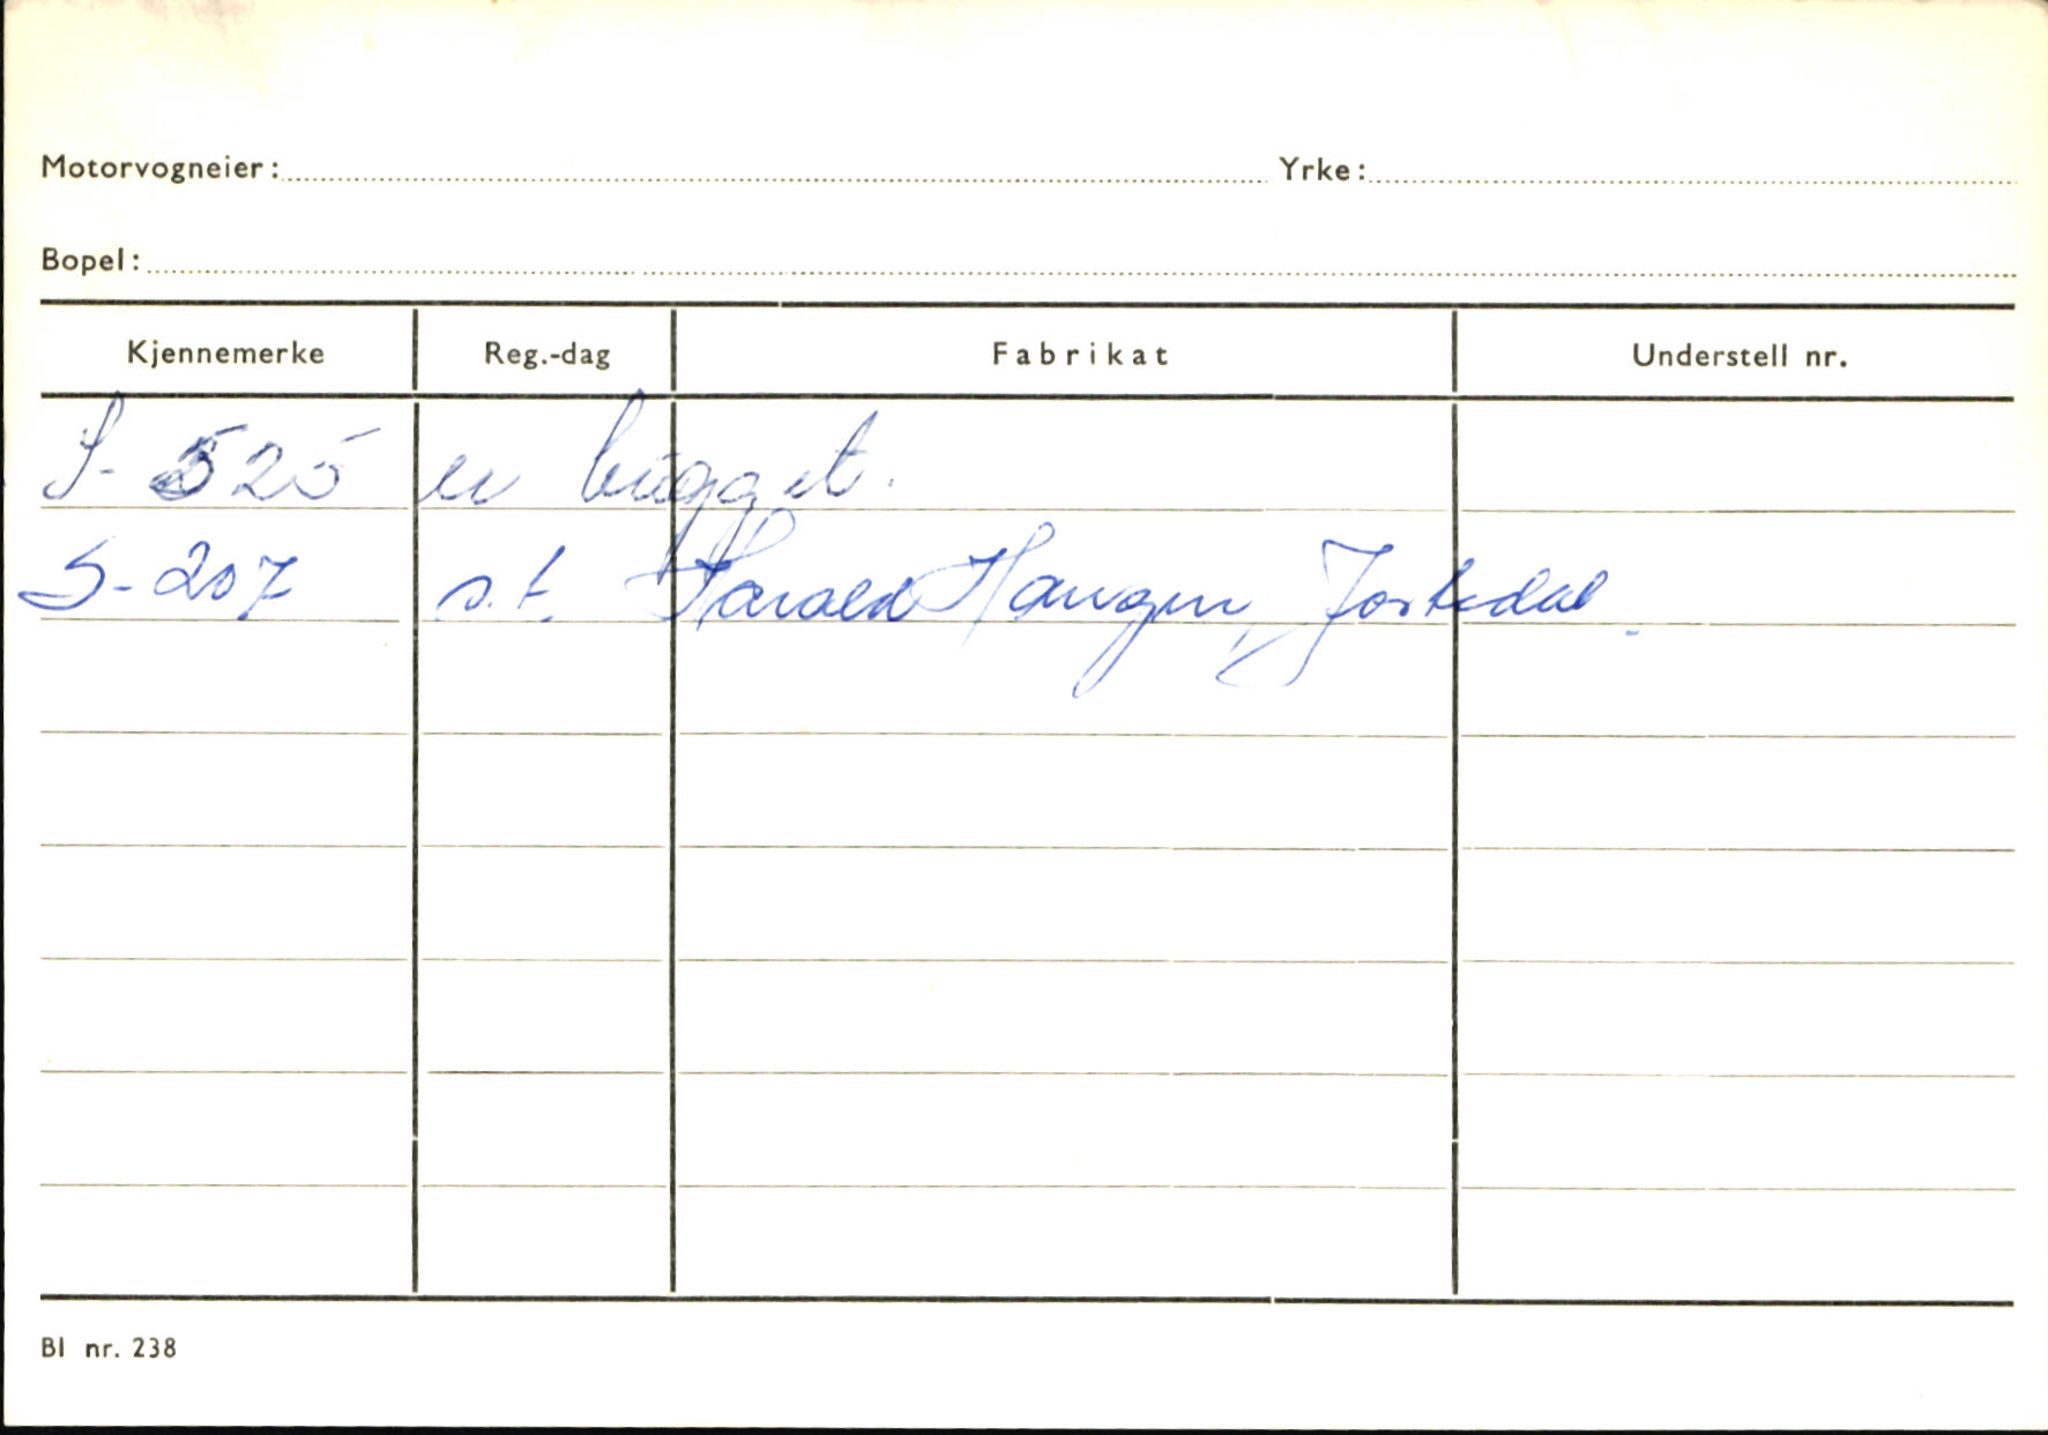 Motorvogneier: Yrke:
Bopel:
Kjennemerke Reg.-dag Fabrikat Understell nr.
S- 525 er bygget.
S-207 s.t. Harald Haugen, Jostedal.
Bl nr. 238